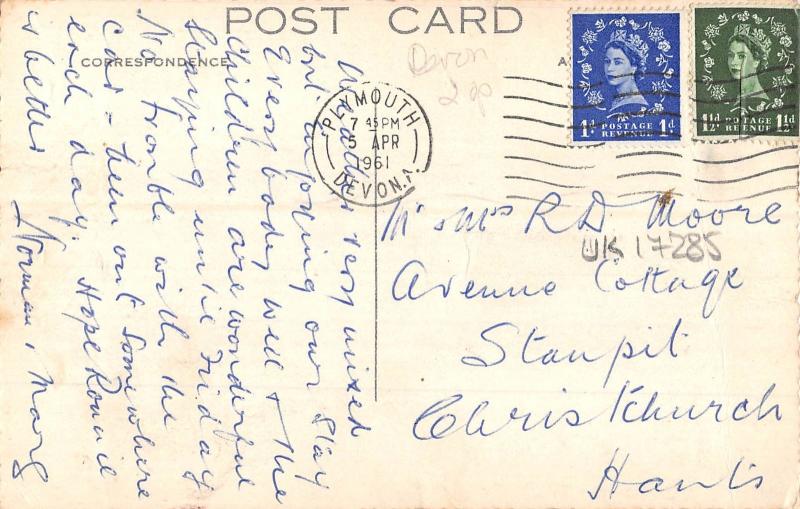 POST CARD
CORRESPONDENCE
A
Devon
2 9p
PLYMOUTH
7 45 PM
5 APR
1961
DEVON.
1D POSTAGE REVENUE 1D
1½D POSTAGE REVENUE 1½D
Weather very mixed
but enjoying our stay
Everybody well & the
Children are wonderful
Staying until Friday
No trouble with the
car - been out somewhere
each day. Hope Ronnie
is better
Norman & Marg
Mr & Mrs R D. Moore
UK 17285
Avenue Cottage
Stanpit
Christchurch
Hants